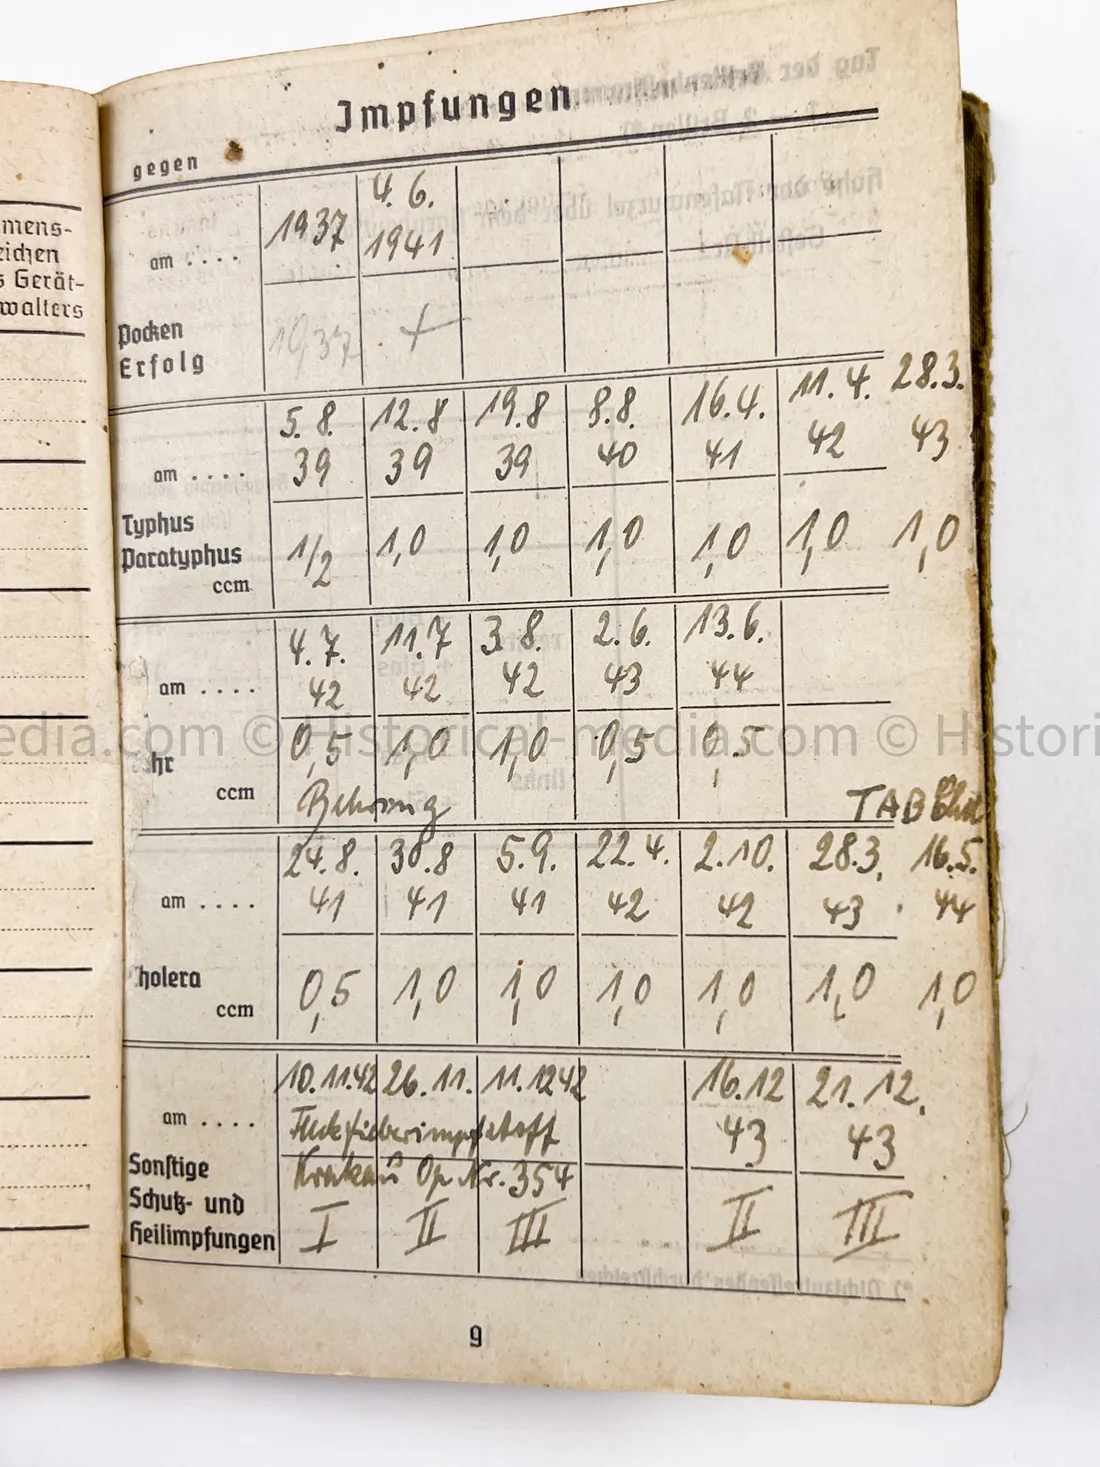 mens-
eichen
s Gerät-
walters
Impfungen
gegen
am . . . .
1937
4. 6.
1941
Pocken
Erfolg
1937
+
am . . . .
5. 8. 39
12. 8 39
19. 8 39
8. 8. 40
16. 4. 41
11. 4. 42
28. 3. 43
Typhus
Paratyphus
ccm
1/2 1,0 1,0 1,0 1,0 1,0 1,0
am . . . .
4. 7. 42
11. 7 42
3. 8. 42
2. 6. 43
13. 6. 44
hr
ccm
0,5 1,0 1,0 0,5 0,5
Behring
TAB
am . . . .
24. 8. 41
30. 8 41
5. 9. 41
22. 4. 42
2. 10. 42
28. 3. 43
16. 5. 44
holera
ccm
0,5 1,0 1,0 1,0 1,0 1,0 1,0
am . . . .
10. 11. 42 26. 11. 11. 12 42
16. 12 43
21. 12. 43
Fleckfieberimpfstoff
Krakau Op Nr. 354
Sonstige
Schutz- und
Heilimpfungen
I II III II III
9
edia.com © Historical-media.com © Histori